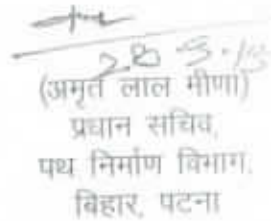 28-5-13
(अमृत लाल मीणा)
प्रधान सचिव,
पथ निर्माण विभाग,
बिहार, पटना